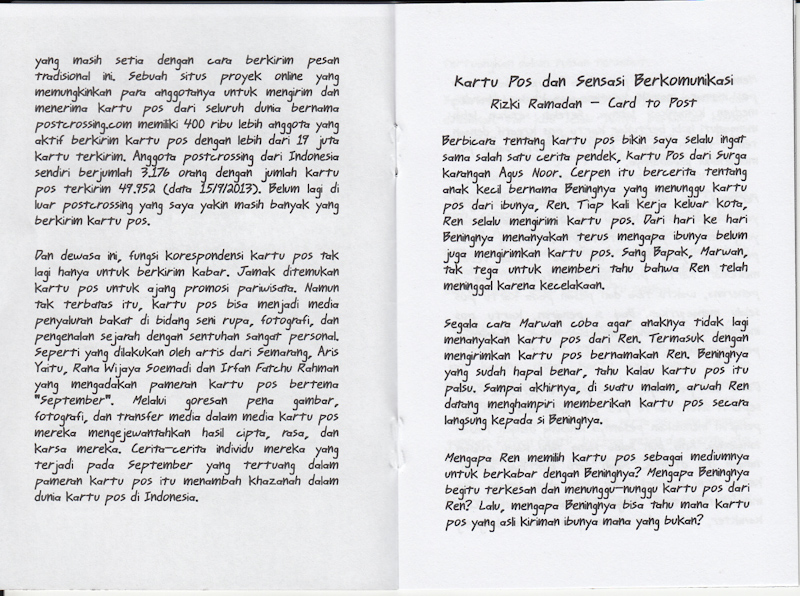 yang masih setia dengan cara berkirim pesan
tradisional ini. Sebuah situs proyek online yang
memungkinkan para anggotanya untuk mengirim dan
menerima kartu pos dari seluruh dunia bernama
postcrossing.com memiliki 400 ribu lebih anggota yang
aktif berkirim kartu pos dengan lebih dari 19 juta
kartu terkirim. Anggota postcrossing dari Indonesia
sendiri berjumlah 3.176 orang dengan jumlah kartu
pos terkirim 49.952 (data 15/9/2013). Belum lagi di
luar postcrossing yang saya yakin masih banyak yang
berkirim kartu pos.
Dan dewasa ini, fungsi korespondensi kartu pos tak
lagi hanya untuk berkirim kabar. Jamak ditemukan
kartu pos untuk ajang promosi pariwisata. Namun
tak terbatas itu, kartu pos bisa menjadi media
penyaluran bakat di bidang seni rupa, fotografi, dan
pengenalan sejarah dengan sentuhan sangat personal.
Seperti yang dilakukan oleh artis dari Semarang, Aris
Yaitu, Rana Wijaya Soemadi dan Irfan Fatchu Rahman
yang mengadakan pameran kartu pos bertema
"September". Melalui goresan pena gambar,
fotografi, dan transfer media dalam media kartu pos
mereka mengejewantahkan hasil cipta, rasa, dan
karsa mereka. Cerita-cerita individu mereka yang
terjadi pada September yang tertuang dalam
pameran kartu pos itu menambah khazanah dalam
dunia kartu pos di Indonesia.
Kartu Pos dan Sensasi Berkomunikasi
Rizki Ramadan - Card to Post
Berbicara tentang kartu pos bikin saya selalu ingat
sama salah satu cerita pendek, Kartu Pos dari Surga
karangan Agus Noor. Cerpen itu bercerita tentang
anak kecil bernama Beningnya yang menunggu kartu
pos dari ibunya, Ren. Tiap kali kerja keluar kota,
Ren selalu mengirimi kartu pos. Dari hari ke hari
Beningnya menanyakan terus mengapa ibunya belum
juga mengirimkan kartu pos. Sang Bapak, Marwan,
tak tega untuk memberi tahu bahwa Ren telah
meninggal karena kecelakaan.
Segala cara Marwan coba agar anaknya tidak lagi
menanyakan kartu pos dari Ren. Termasuk dengan
mengirimkan kartu pos bernamakan Ren. Beningnya
yang sudah hapal benar, tahu kalau kartu pos itu
palsu. Sampai akhirnya, di suatu malam, arwah Ren
datang menghampiri memberikan kartu pos secara
langsung kepada si Beningnya.
Mengapa Ren memilih kartu pos sebagai mediumnya
untuk berkabar dengan Beningnya? Mengapa Beningnya
begitu terkesan dan menunggu-nunggu kartu pos dari
Ren? Lalu, mengapa Beningnya bisa tahu mana kartu
pos yang asli kiriman ibunya mana yang bukan?